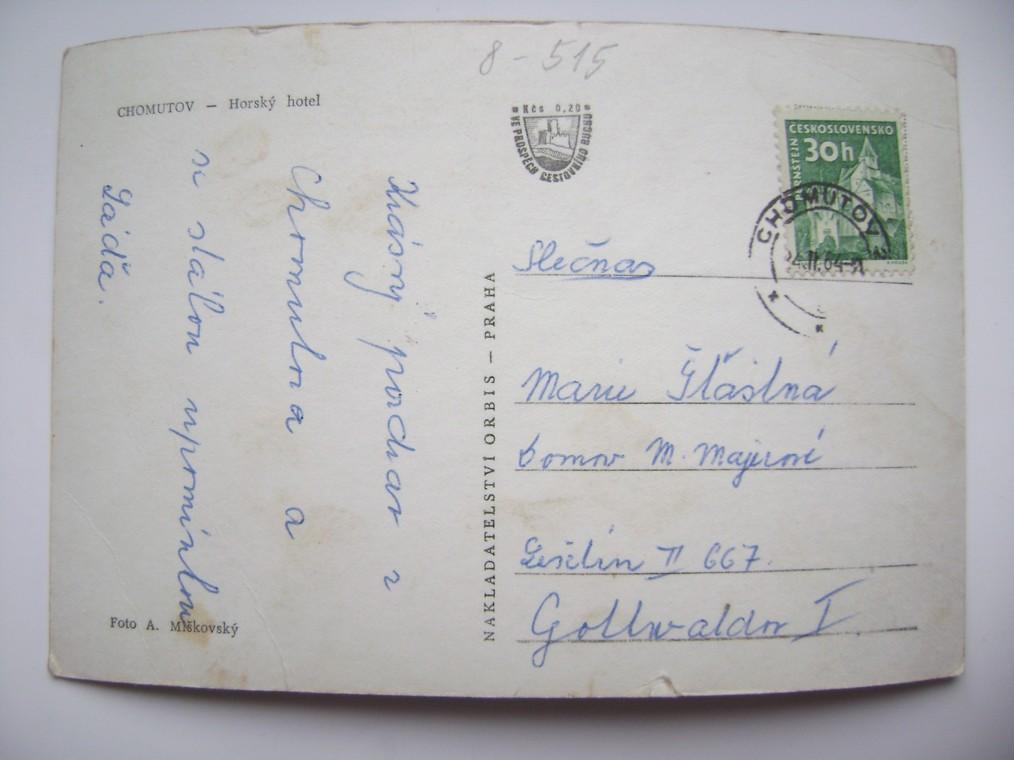 8-515
CHOMUTOV — Horský hotel
Krásný pozdrav z
Chomutova a
se stálou vzpomínkou
Láďa.
Foto A. Miškovský
NAKLADATELSTVÍ ORBIS — PRAHA
Kčs 0,20
VE PROSPĚCH CESTOVNÍHO RUCHU
ČESKOSLOVENSKO
30h
CHOMUTOV
Slečna
Marie Šťástná
Domov M. Majerové
II 667.
Gottwaldov I.